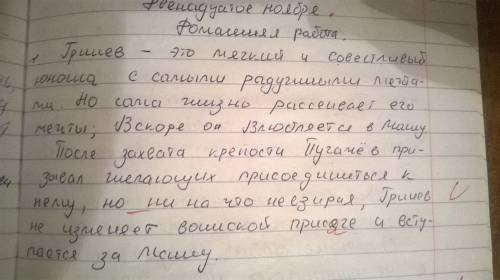 Двенадцатое ноября.
Домашняя работа.
Гринев - это мягкий и совестливый
юноша с самыми радужными мечта-
ми. Но сама жизнь рассеивает его
мечты, Вскоре он влюбляется в Машу.
После захвата крепости Пугачёв при-
зывал желающих присоединиться к
нему, но ни на что невзирая, Гринев
не изменяет воинской присяге и всту-
пается за Машу.